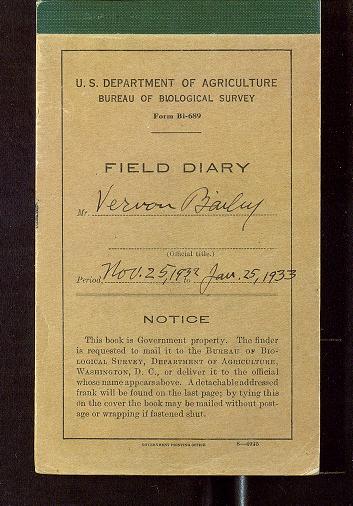 U. S. DEPARTMENT OF AGRICULTURE
BUREAU OF BIOLOGICAL SURVEY
Form Bi-689
FIELD DIARY
Mr. Vernon Bailey
(Official title.)
Period, Nov. 25, 1932 to Jan. 25, 1933
NOTICE
This book is Government property. The finder
is requested to mail it to the BUREAU OF BIO-
LOGICAL SURVEY, DEPARTMENT OF AGRICULTURE,
WASHINGTON, D. C., or deliver it to the official
whose name appears above. A detachable addressed
frank will be found on the last page; by tying this
on the cover the book may be mailed without post-
age or wrapping if fastened shut.
GOVERNMENT PRINTING OFFICE